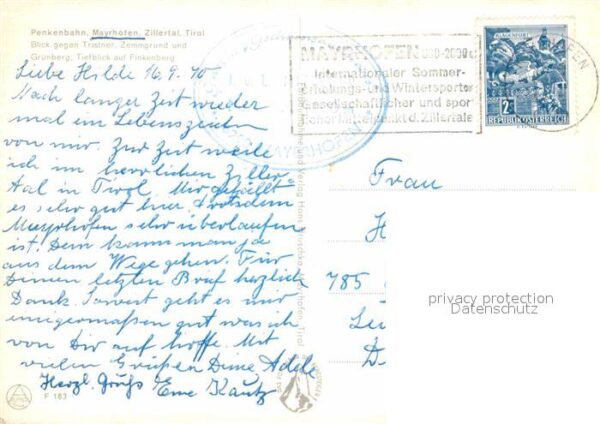 Penkenbahn, Mayrhofen, Zillertal, Tirol
Blick gegen Tristner, Zemmgrund und
Grünberg; Tiefblick auf Finkenberg
Liebe Hilde 16.9.70
Nach langer Zeit wieder
mal ein Lebenszeichen
von mir. Zur Zeit weile
ich im herrlichen Ziller
tal in Tirol. Mir gefällt
es sehr gut hier trotzdem
Mayrhofen sehr überlaufen
ist. Dem kann man ja
aus dem Wege gehen. Für
Deinen letzten Brief herzlich
Dank. Soweit geht es mir
einigermaßen gut was ich
von Dir auch hoffe. Mit
vielen Grüßen Deine Adele
Herzl. Grüße Kautz
F 183
MAYRHOFEN
Internationaler Sommer-
Erholungs- und Wintersportort
Gesellschaftlicher und sport
licher Mittelpunkt d. Zillertales
MAYRHOFEN
KLAGENFURT
2
REPUBLIK ÖSTERREICH
Frau
H
785
D
privacy protection
Datenschutz